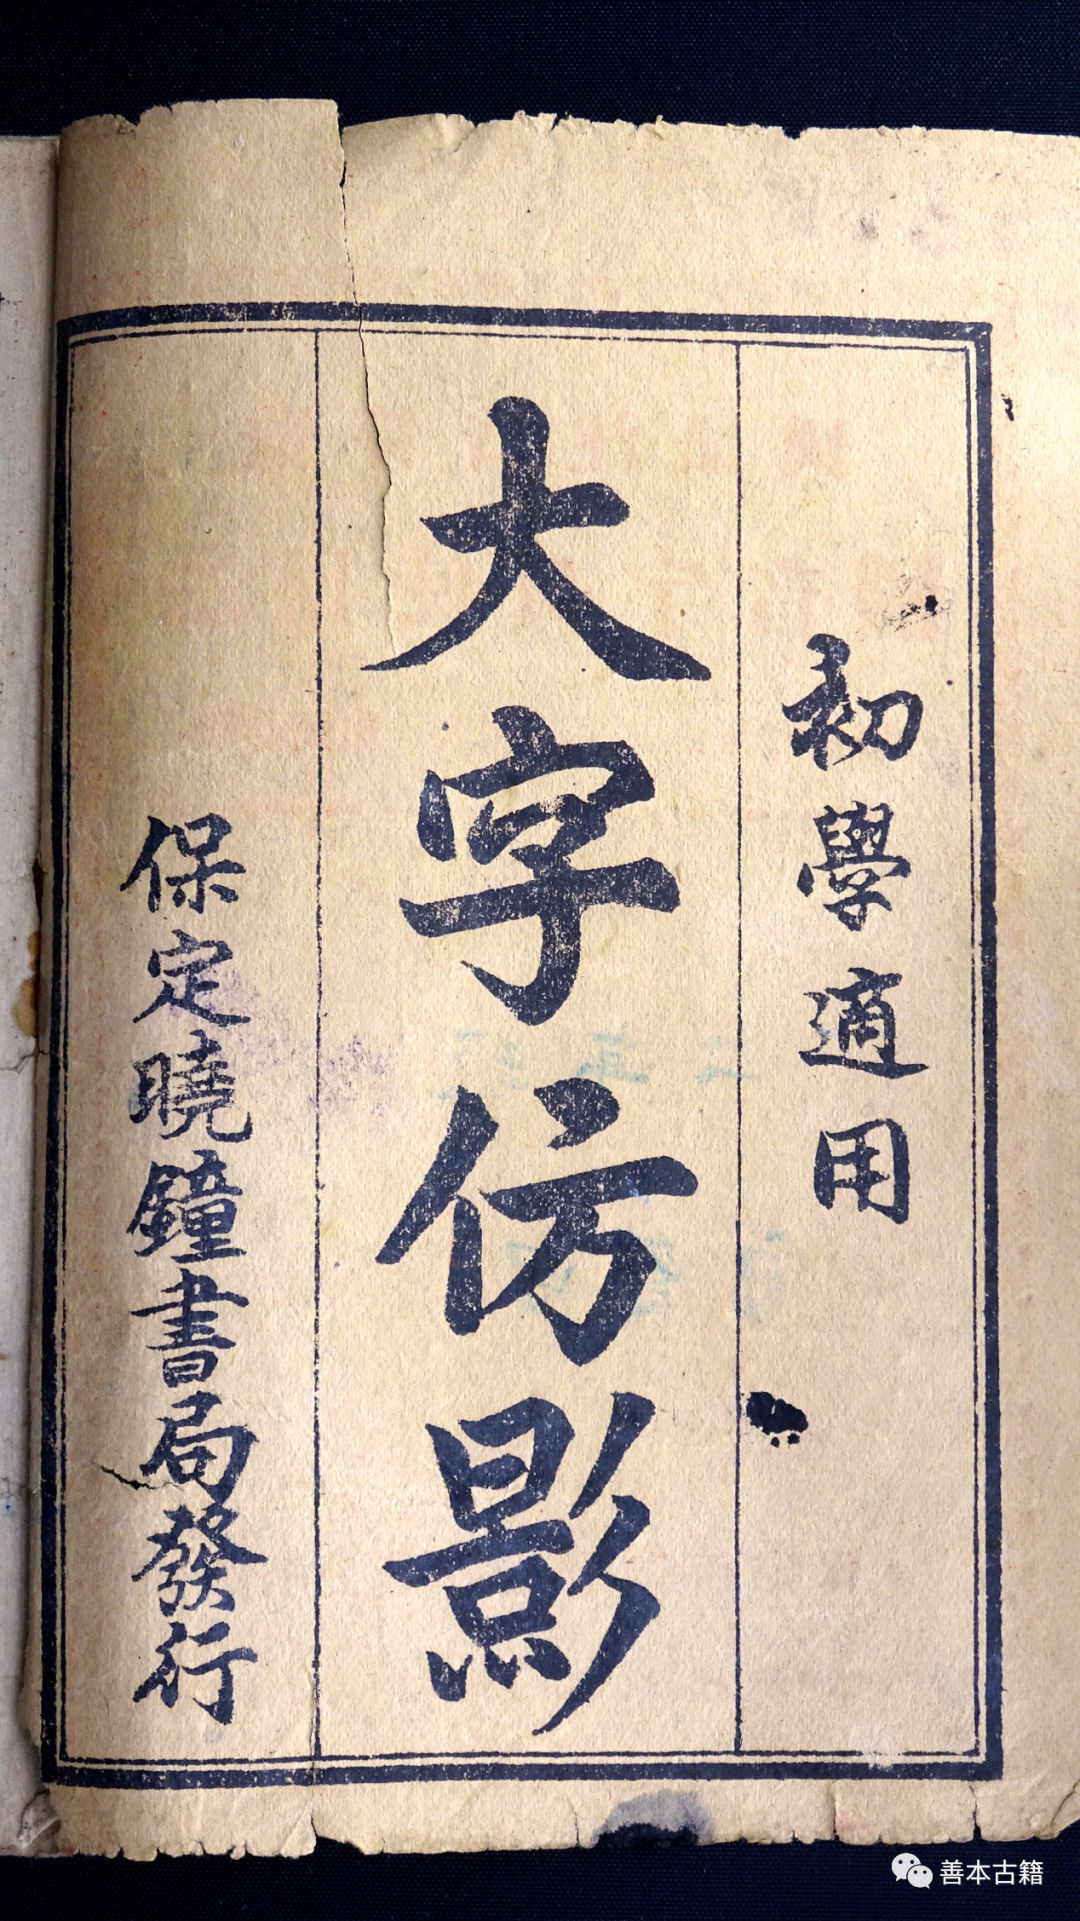 初學適用
大字仿影
保定曉鐘書局發行
善本古籍